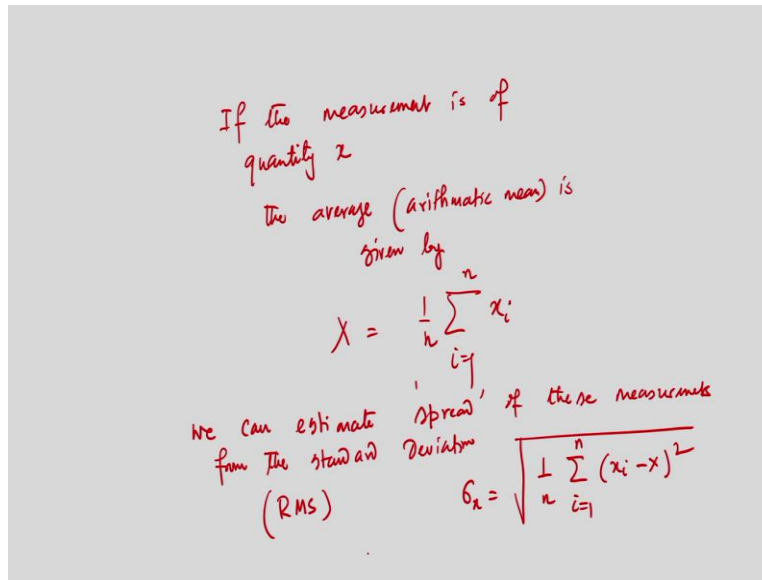 If the measurement is of
quantity x
The average (arithmatic mean) is
given by
X = 1/n ∑_{i=1}^{n} x_i
we can estimate 'spread' of these measurmets
from The standard Deviation
(RMS) σ_x = √(1/n ∑_{i=1}^{n} (x_i - X)^2)